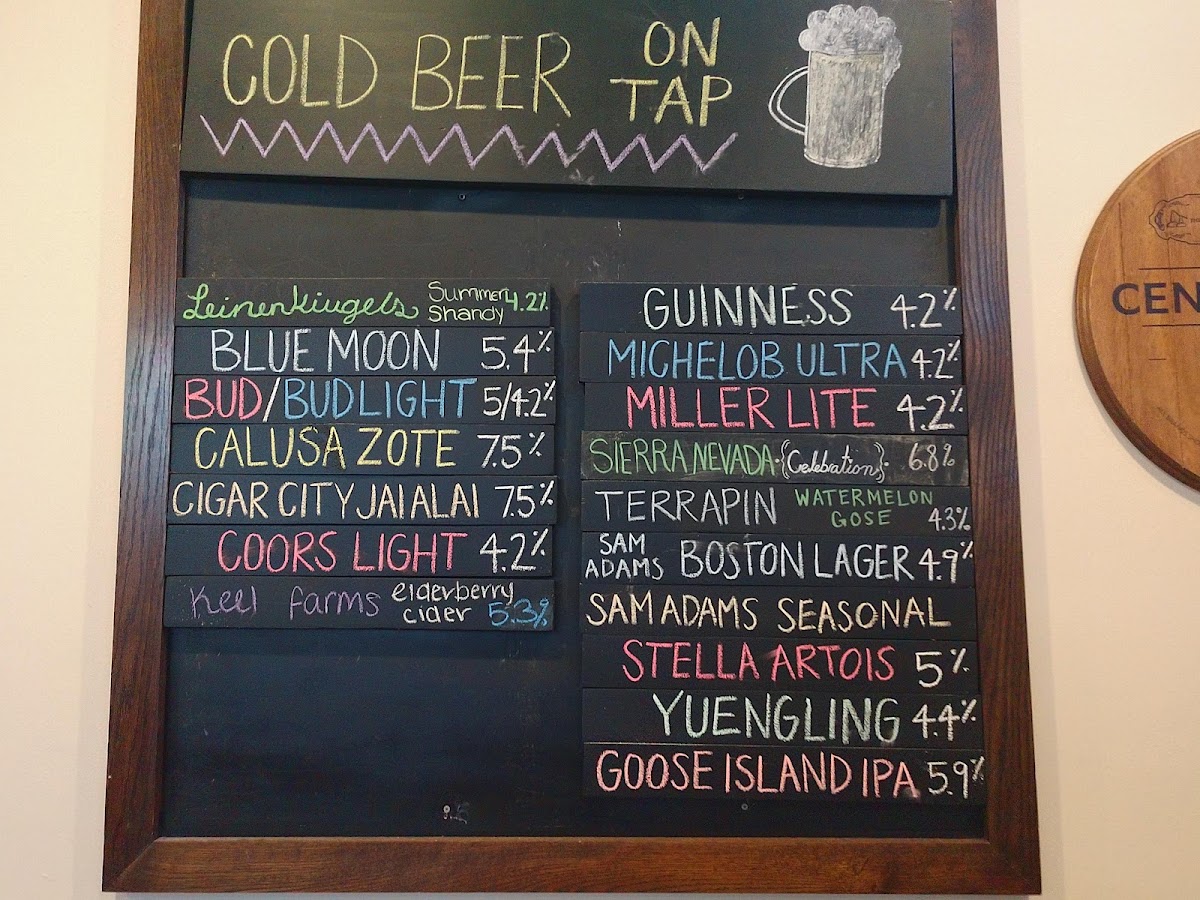 COLD BEER ON TAP
Leinenkiugels Summer Shandy 4.2%
BLUE MOON 5.4%
BUD/BUDLIGHT 5/4.2%
CALUSA ZOTE 7.5%
CIGAR CITY JAI ALAI 7.5%
COORS LIGHT 4.2%
Keel farms elderberry cider 5.3%
GUINNESS 4.2%
MICHELOB ULTRA 4.2%
MILLER LITE 4.2%
SIERRA NEVADA·{Celebration}· 6.8%
TERRAPIN WATERMELON GOSE 4.3%
SAM ADAMS BOSTON LAGER 4.9%
SAM ADAMS SEASONAL
STELLA ARTOIS 5%
YUENGLING 4.4%
GOOSE ISLAND IPA 5.9%
CEN